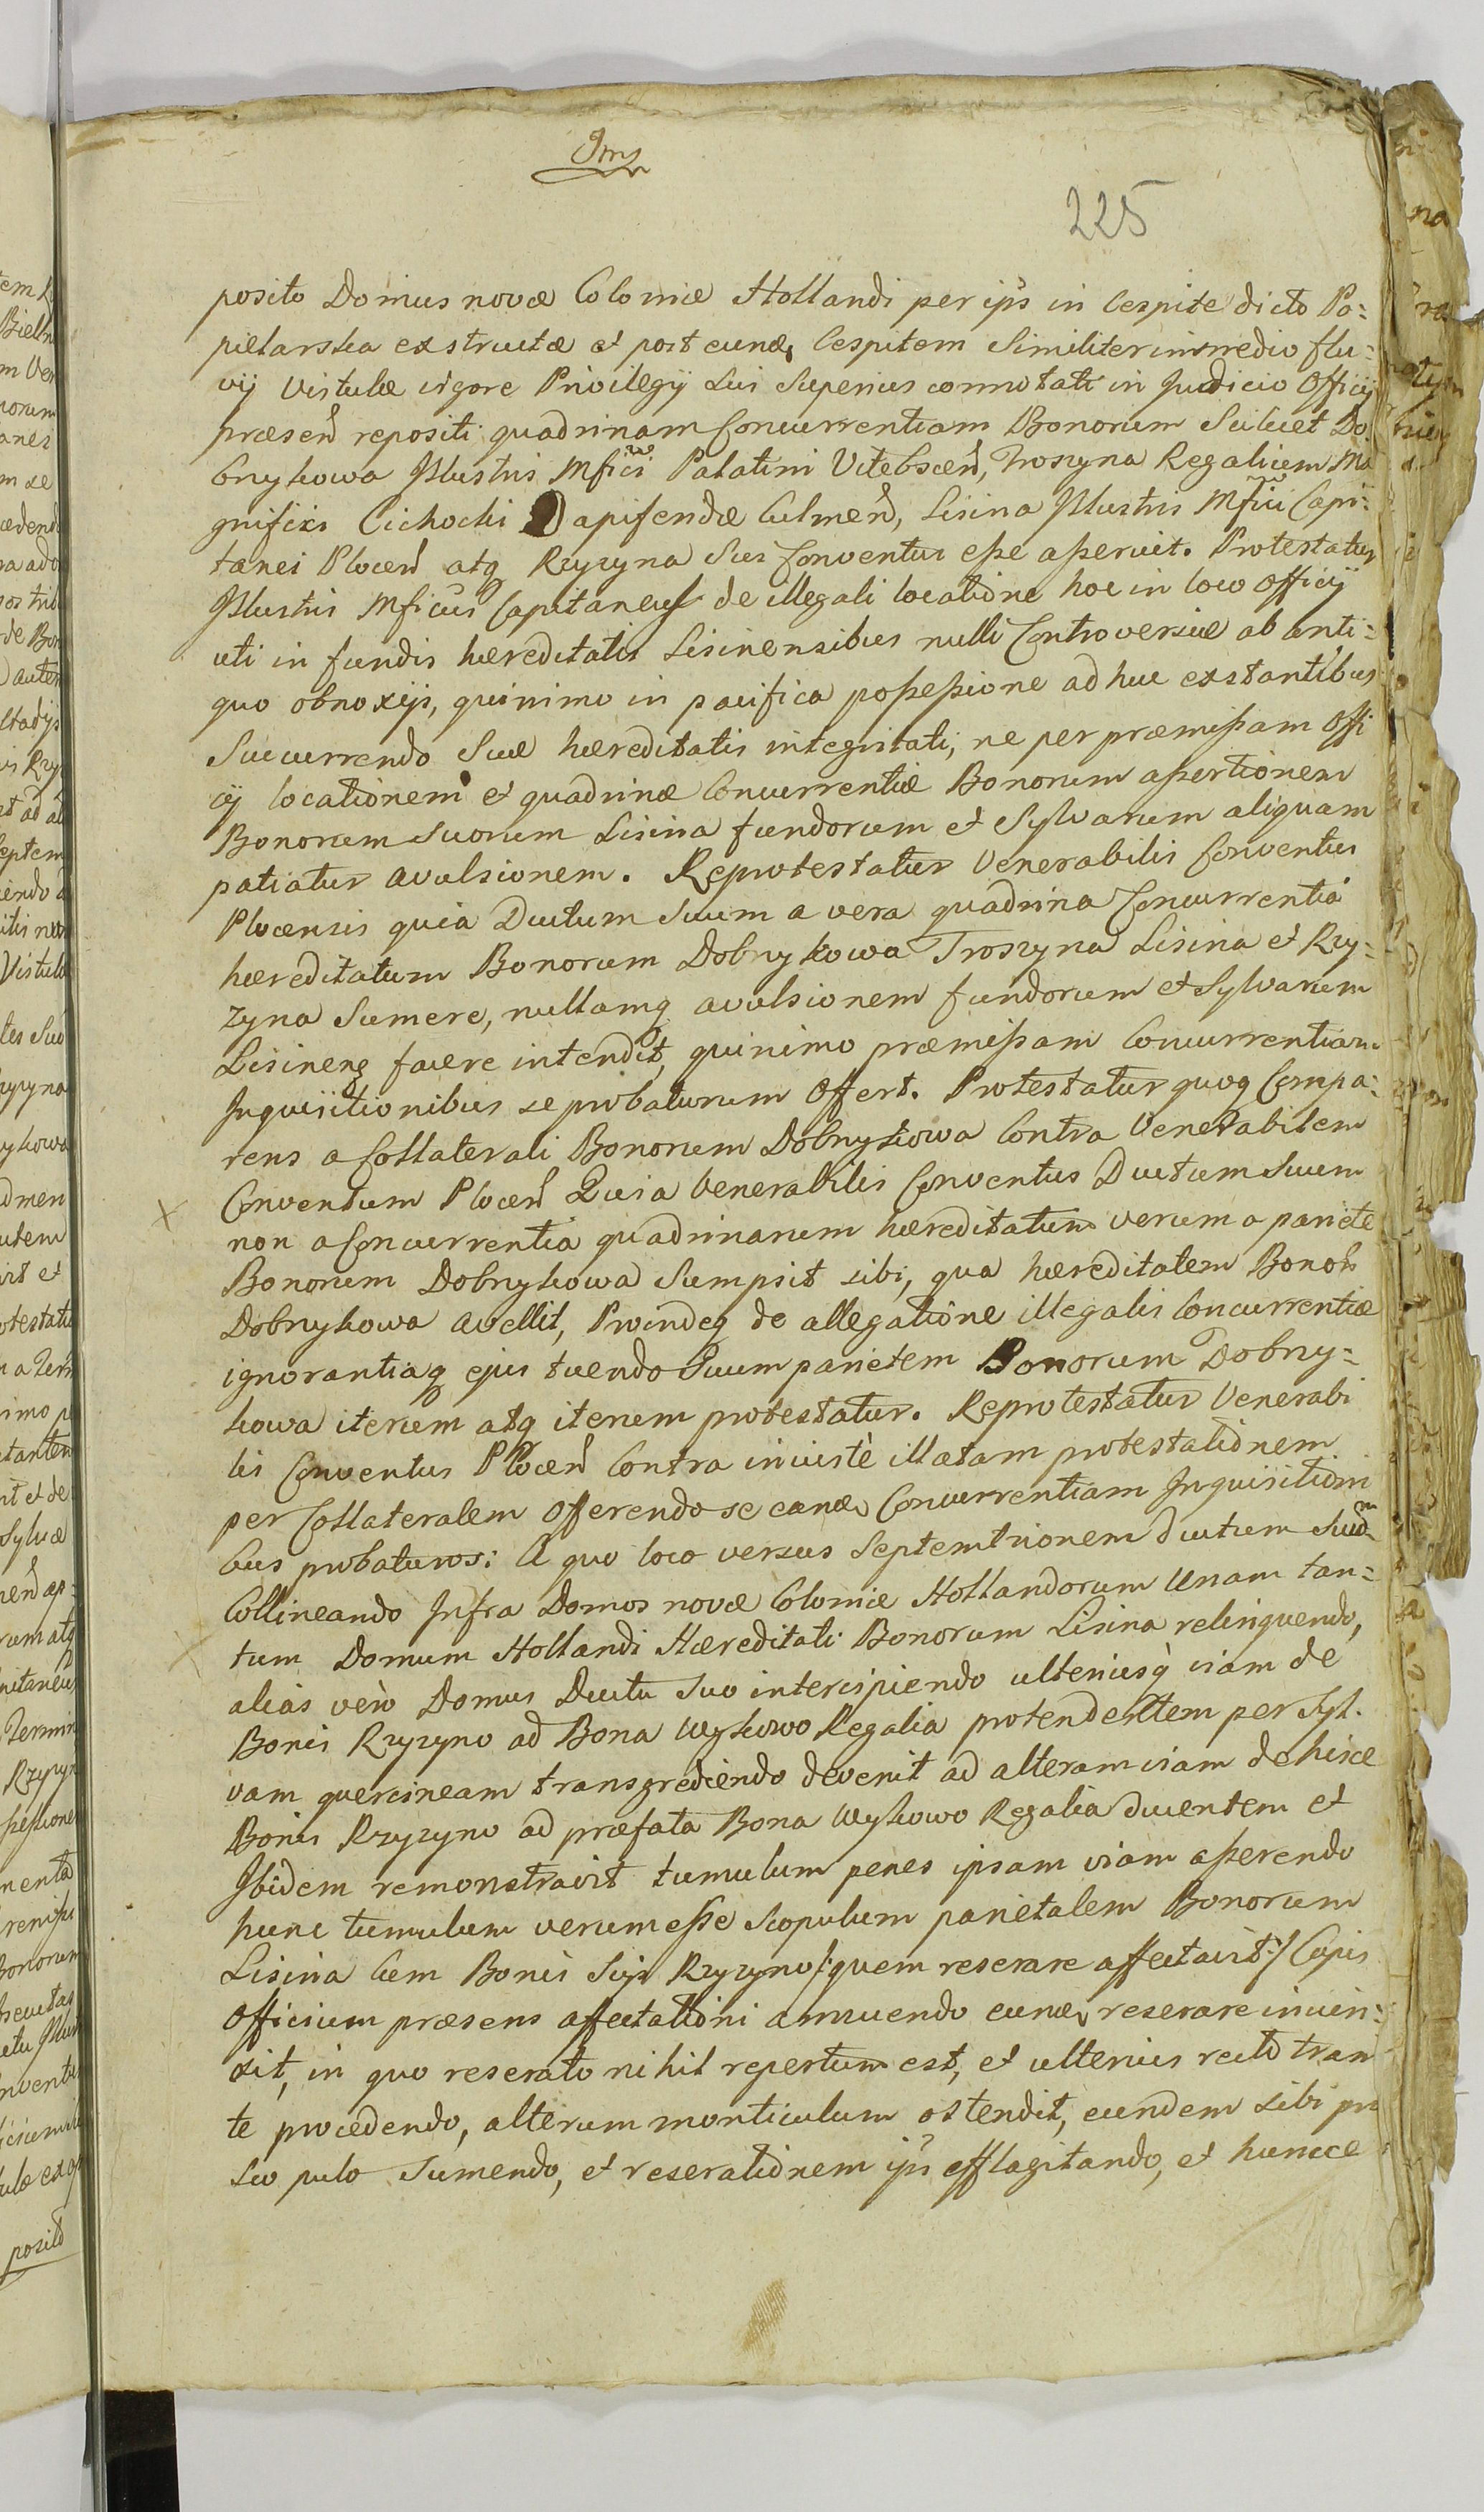 225
posito Domus novæ Coloniæ Hollandi per ips in Cespite dicto Po=
pielarska exstructæ et post eund Cespitem Similiter in medio flu=
vij Vistulæ vigore Privilegij Sui Superius connotati in Judicio Officij
præsen repositi quadrinam Concurrentiam Bonorum Scilicet Do
brzykowa Jllustris Mfici Palatini Vitebscen, Troszyna Regalium Ma
gnifici Cichocki Dapiferidæ Culmen, Lisina Jllustris Mfici Capi=
tanei Plocen atq Rzyzyna Sui Conventus eße aßeruit. Protestatur
Jllustris Mficus Capitaneus de illegali locatione hoc in loco Officij
uti in fundis hæreditatis Lisinensibus nulli Controversiæ ab anti=
quo obnoxijs, quinimo in pacifica poßeßione ad huc exstantibus
Succurrendo Suæ hæreditatis integritati, ne per præmißam Offi
cij locationem et quadrinæ Concurrentiæ Bonorum aßertionem
Bonorum Suorum Lisina fundorum et Sylvarum aliquam
patiatur avulsionem. Reprotestatur Venerabilis Conventus
Plocensis quia Ductum Suum a vera quadrina Concurrentia
hæreditatum Bonorum Dobrzykowa Troszyna Lisina et Rzy=
zyna Sumere, nullamq avulsionem fundorum et Sylvarum
Lisinen facere intendit, quinimo præmißam Concurrentiam
Jnquisitionibus se probaturum Offert. Protestatur quoq Compa=
rens a Collaterali Bonorum Dobrzykowa Contra Venerabilem
Conventum Plocen Quia Venerabilis Conventus Ductum Suum
non a Concurrentia quadrinarum hæreditatum verum a pariete
Bonorum Dobrzykowa Sumpsit sibi, qua hæreditatem Bonor
Dobrzykowa avellit, Proindeq de allegatione illegalis Concurrentiæ
ignorantiaq ejus tuendo Suum parietem Bonorum Dobrzy=
kowa iterum atq iterum protestatur. Reprotestatur Venerabi
lis Conventus Plocen Contra iniustè illatam protestationem
per Collateralem Offerendo se eand Concurrentiam Jnquisitioni
bus probaturos: A quo loco versus Septemtrionem ductum Suum
Collineando Jnfra Domos novæ Coloniæ Hollandorum Unam tan=
tum Domum Hollandi Hæreditati Bonorum Lisina relinquendo,
alias verò Domus Ductu Suo intercipiendo ulteriusq viam de
Bonis Rzyzyno ad Bona Wykowo Regalia protendentem per Syl.
vam quercineam transgrediendo devenit ad alteram viam de hisce
Bonis Rzyzyno ad præfata Bona Wykowo Regalia ducentem et
Jbidem remonstravit tumulum penes ipsam viam aßerendo
hunc tumulum verum eße Scopulum parietalem Bonorum
Lisina Cum Bonis Suis Rzyzyno /:quem reserare affectavit:/ Cujus
Officium præsens affectationi annuendo eund reserare iniun=
xit, in quo reserato nihil repertum est, et ulterius recto tran
te procedendo, alterum monticulum ostendit, eundem sibi pro
Sco pulo Sumendo, et reserationem ips efflagitando, et huncce